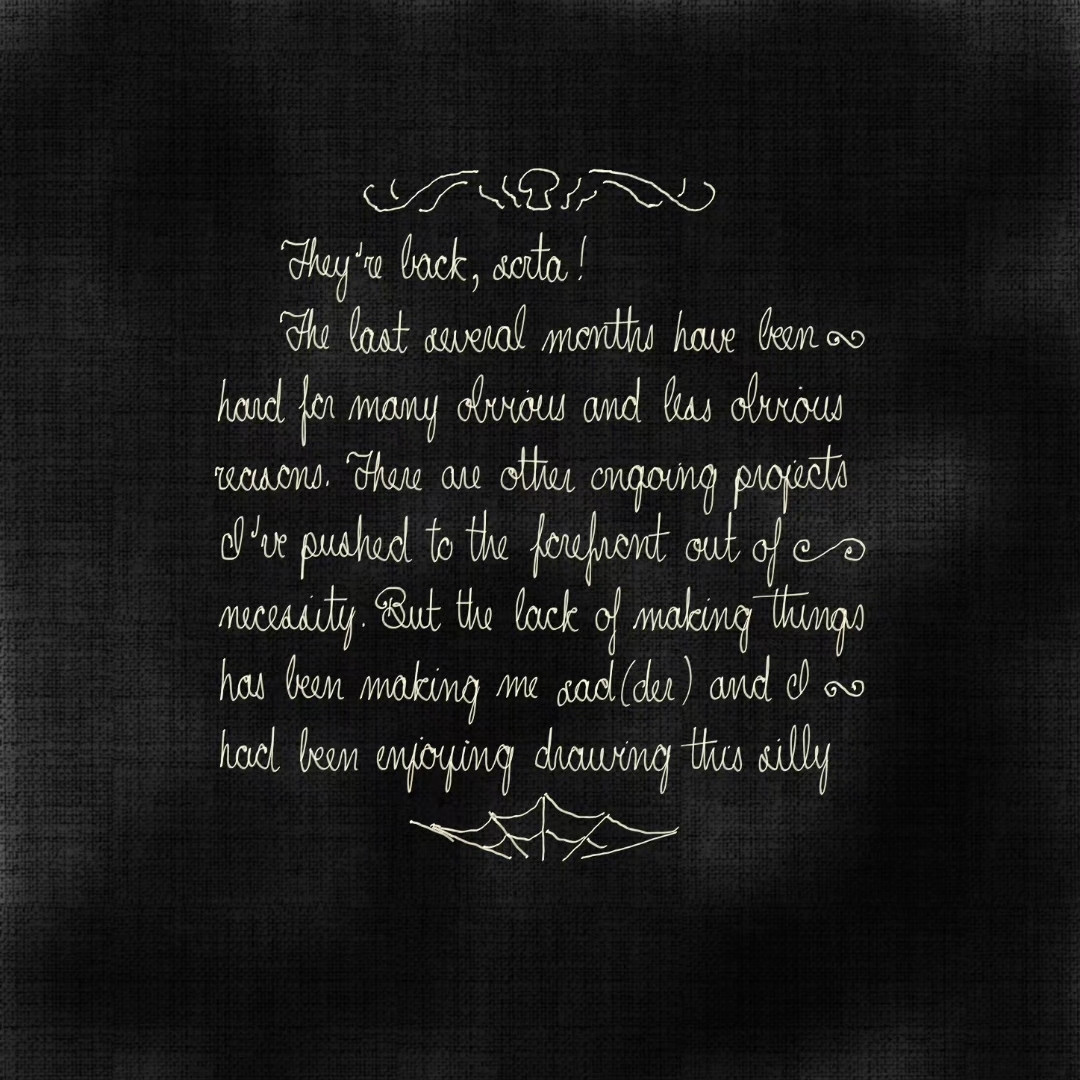 They're back, sorta!
The last several months have been
hard for many obvious and less obvious
reasons. There are other ongoing projects
I've pushed to the forefront out of
necessity. But the lack of making things
has been making me sad(der) and I
had been enjoying drawing this silly